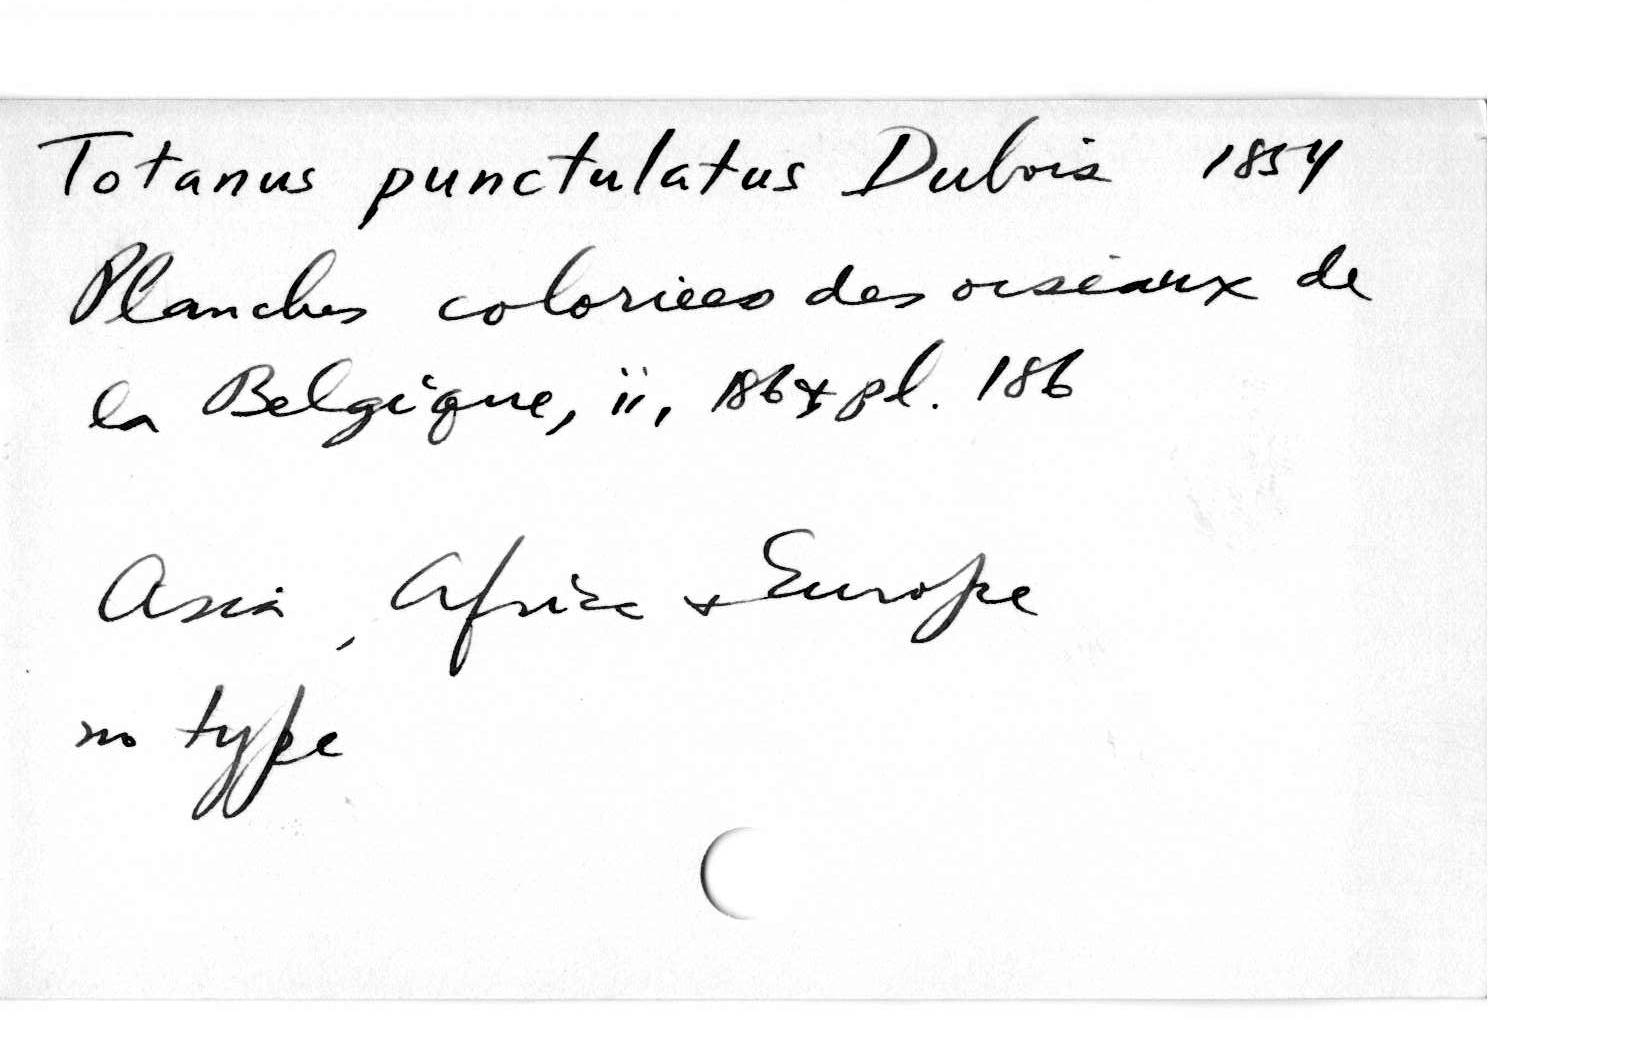 Totanus punctulatus Dubois 1854
Planches coloriees des oiseaux de
la Belgique, ii, 1864 pl. 186
Asia, Africa + Europe
no type